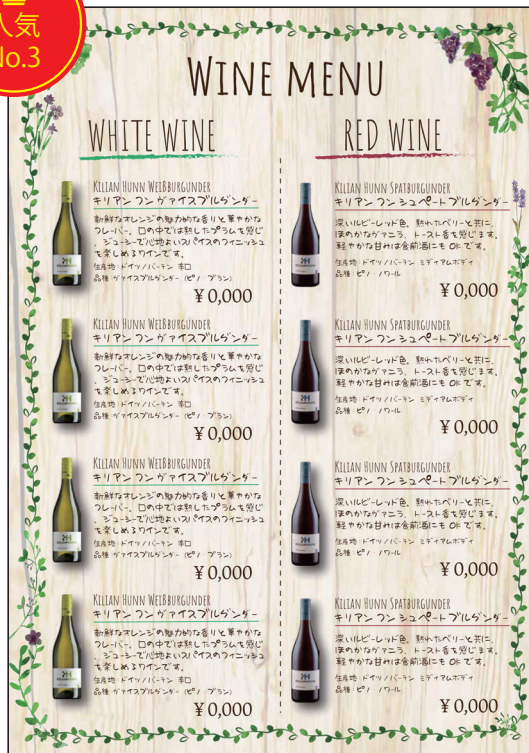 人気
No.3
WINE MENU
WHITE WINE
KILIAN HUNN WEIßBURGUNDER
キリアン フン ヴァイスブルグンダー
新鮮なオレンジの魅力的な香りと華やかな
フレーバー。口の中では熟したプラムを感じ
、ジューシーで心地よいスパイスのフィニッシュ
を楽しめるワインです。
生産地:ドイツ/バーデン 辛口
品種:ヴァイスブルグンダー (ピノ ブラン)
¥0,000
KILIAN HUNN WEIßBURGUNDER
キリアン フン ヴァイスブルグンダー
新鮮なオレンジの魅力的な香りと華やかな
フレーバー。口の中では熟したプラムを感じ
、ジューシーで心地よいスパイスのフィニッシュ
を楽しめるワインです。
生産地:ドイツ/バーデン 辛口
品種:ヴァイスブルグンダー (ピノ ブラン)
¥0,000
KILIAN HUNN WEIßBURGUNDER
キリアン フン ヴァイスブルグンダー
新鮮なオレンジの魅力的な香りと華やかな
フレーバー。口の中では熟したプラムを感じ
、ジューシーで心地よいスパイスのフィニッシュ
を楽しめるワインです。
生産地:ドイツ/バーデン 辛口
品種:ヴァイスブルグンダー (ピノ ブラン)
¥0,000
KILIAN HUNN WEIßBURGUNDER
キリアン フン ヴァイスブルグンダー
新鮮なオレンジの魅力的な香りと華やかな
フレーバー。口の中では熟したプラムを感じ
、ジューシーで心地よいスパイスのフィニッシュ
を楽しめるワインです。
生産地:ドイツ/バーデン 辛口
品種:ヴァイスブルグンダー (ピノ ブラン)
¥0,000
RED WINE
KILIAN HUNN SPATBURGUNDER
キリアン フン シュペートブルグンダー
深いルビーレッド色。熟れたベリーと共に、
ほのかなヴァニラ、トースト香を感じます。
軽やかな甘みは食前酒にも OK です。
生産地:ドイツ/バーデン ミディアムボディ
品種:ピノ ノワール
¥0,000
KILIAN HUNN SPATBURGUNDER
キリアン フン シュペートブルグンダー
深いルビーレッド色。熟れたベリーと共に、
ほのかなヴァニラ、トースト香を感じます。
軽やかな甘みは食前酒にも OK です。
生産地:ドイツ/バーデン ミディアムボディ
品種:ピノ ノワール
¥0,000
KILIAN HUNN SPATBURGUNDER
キリアン フン シュペートブルグンダー
深いルビーレッド色。熟れたベリーと共に、
ほのかなヴァニラ、トースト香を感じます。
軽やかな甘みは食前酒にも OK です。
生産地:ドイツ/バーデン ミディアムボディ
品種:ピノ ノワール
¥0,000
KILIAN HUNN SPATBURGUNDER
キリアン フン シュペートブルグンダー
深いルビーレッド色。熟れたベリーと共に、
ほのかなヴァニラ、トースト香を感じます。
軽やかな甘みは食前酒にも OK です。
生産地:ドイツ/バーデン ミディアムボディ
品種:ピノ ノワール
¥0,000